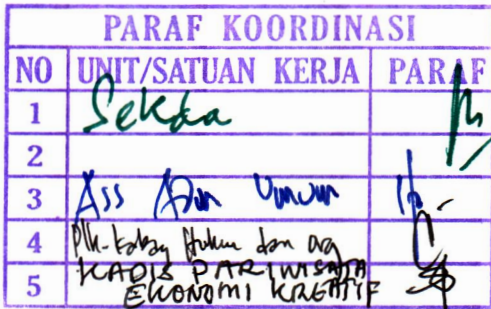 PARAF KOORDINASI
NO UNIT/SATUAN KERJA PARAF
1 Sekda
2
3 Ass Adm Umum
4 Plh. Kabag Hukum dan org
5 KADIS PARIWISATA
EKONOMI KREATIF